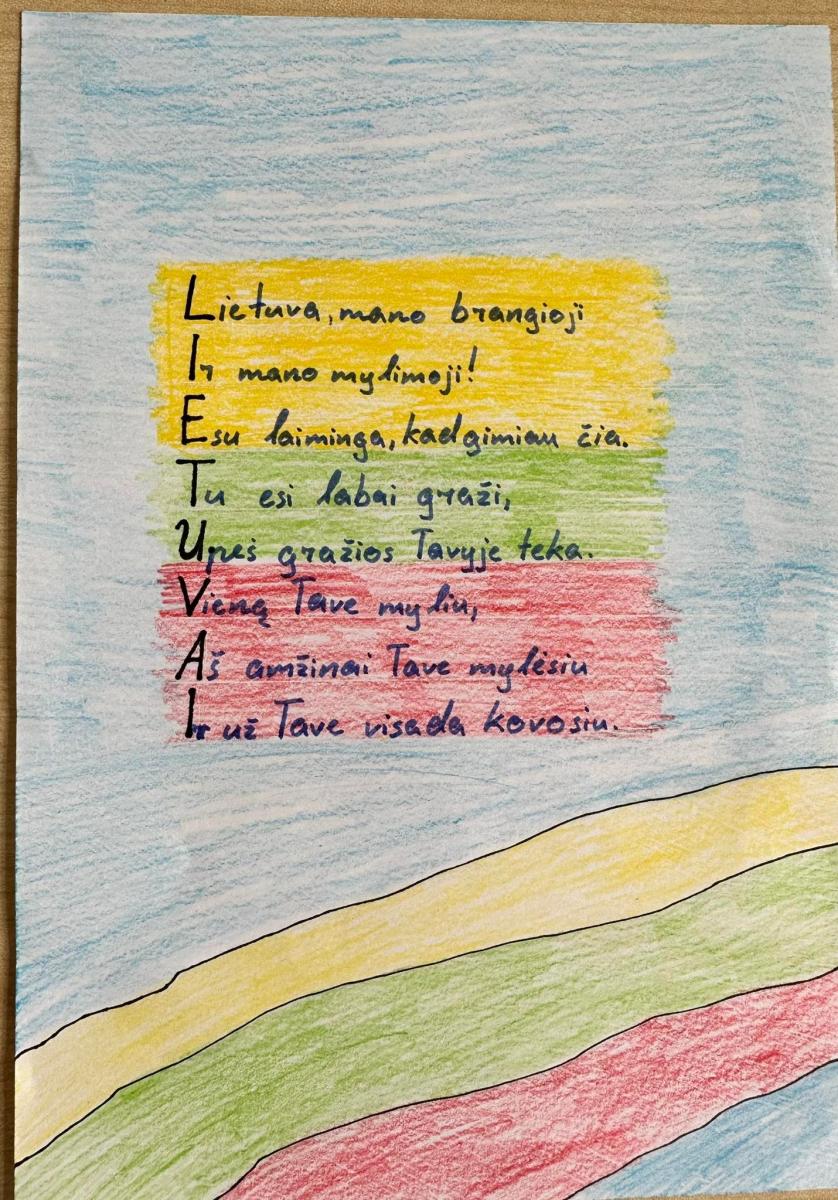 Lietuva, mano brangioji
Ir mano mylimoji!
Esu laiminga, kad gimiau čia.
Tu esi labai graži,
Upės gražios Tavyje teka.
Vieną Tave myliu,
Aš amžinai Tave mylėsiu
Ir už Tave visada kovosiu.